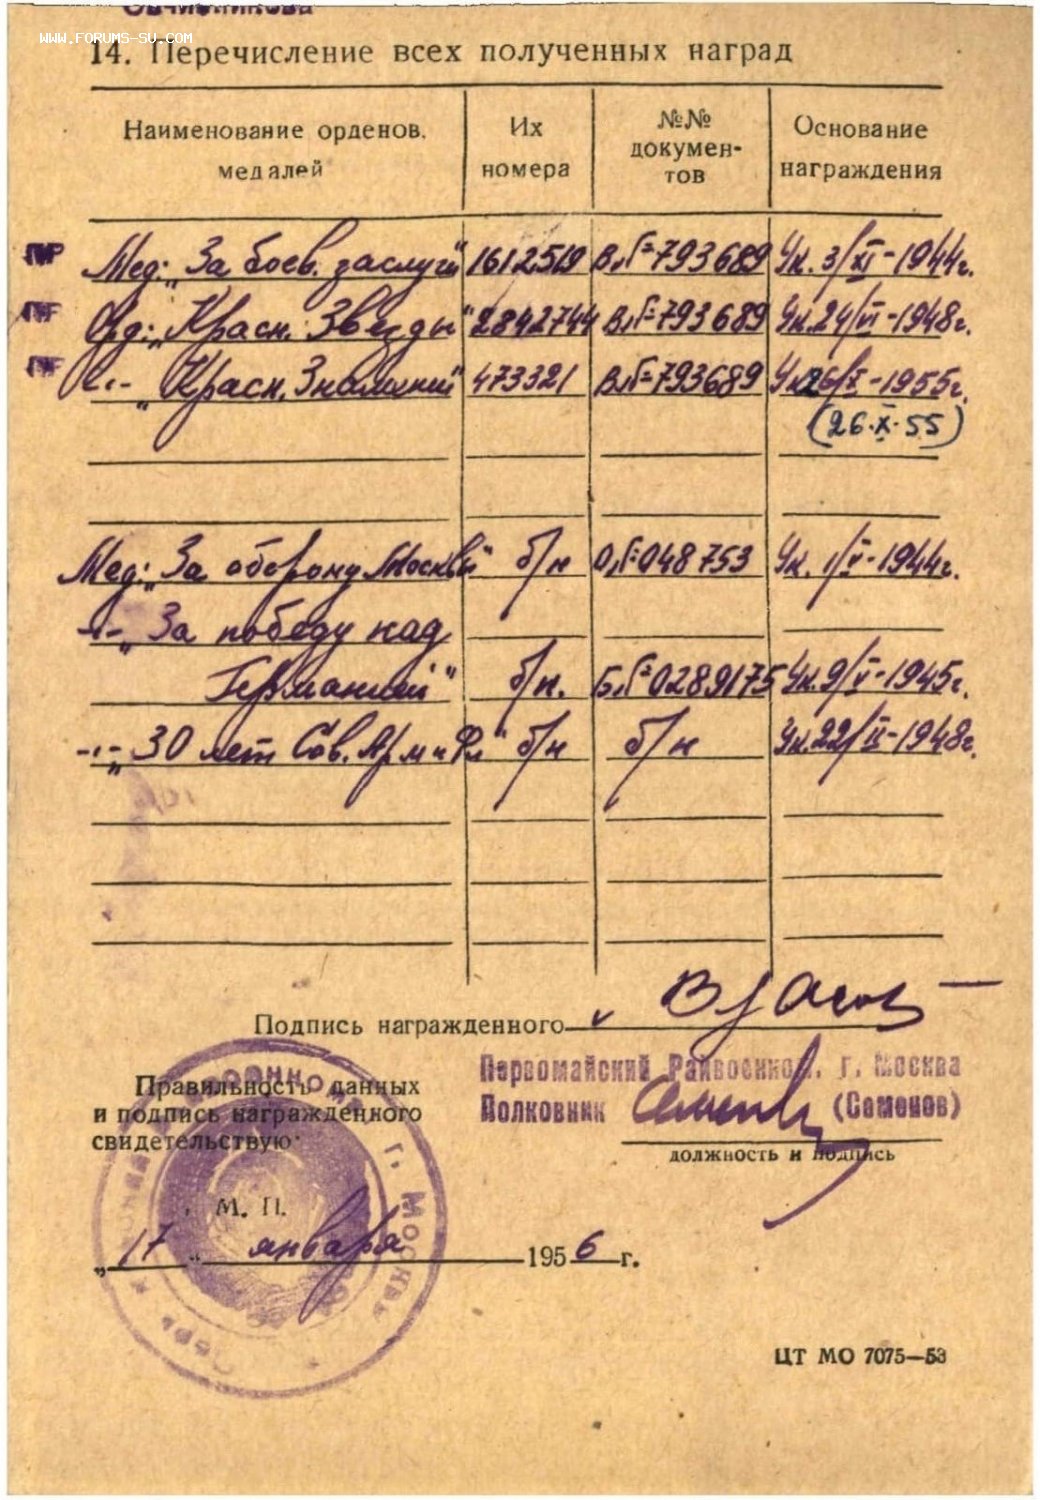 Овчинникова
WWW.FORUMS-SU.COM
14. Перечисление всех полученных наград
Наименование орденов, медалей
Их номера
№№ докумен-
тов
Основание награждения
Мед: „За боев. заслуги" 1612519 В. № 793689 Ук. 3/XI-1944г.
Орд: „Красн. Звезды" 2842744 В № 793689 Ук 24/VI-1948г.
-"- „Красн. Знамени" 473321 В № 793689 Ук 26/X-1955г.
(26.X.55)
Мед: „За оборону Москвы" б/н О, № 048753 Ук. 1/V-1944г.
-"- „За победу над
Германией" б/н. Б, № 0289175 Ук. 9/V-1945г.
-"- „30 лет Сов. Арм и Фл" б/н б/н Ук. 22/II-1948г.
Подпись награжденного v Власов
Первомайский Райвоенком. г. Москва
Правильность данных
и подпись награжденного
свидетельствую:
Полковник (Семенов)
должность и подпись
г. Москвы
М. П.
„17" января 1956 г.
ЦТ МО 7075—53